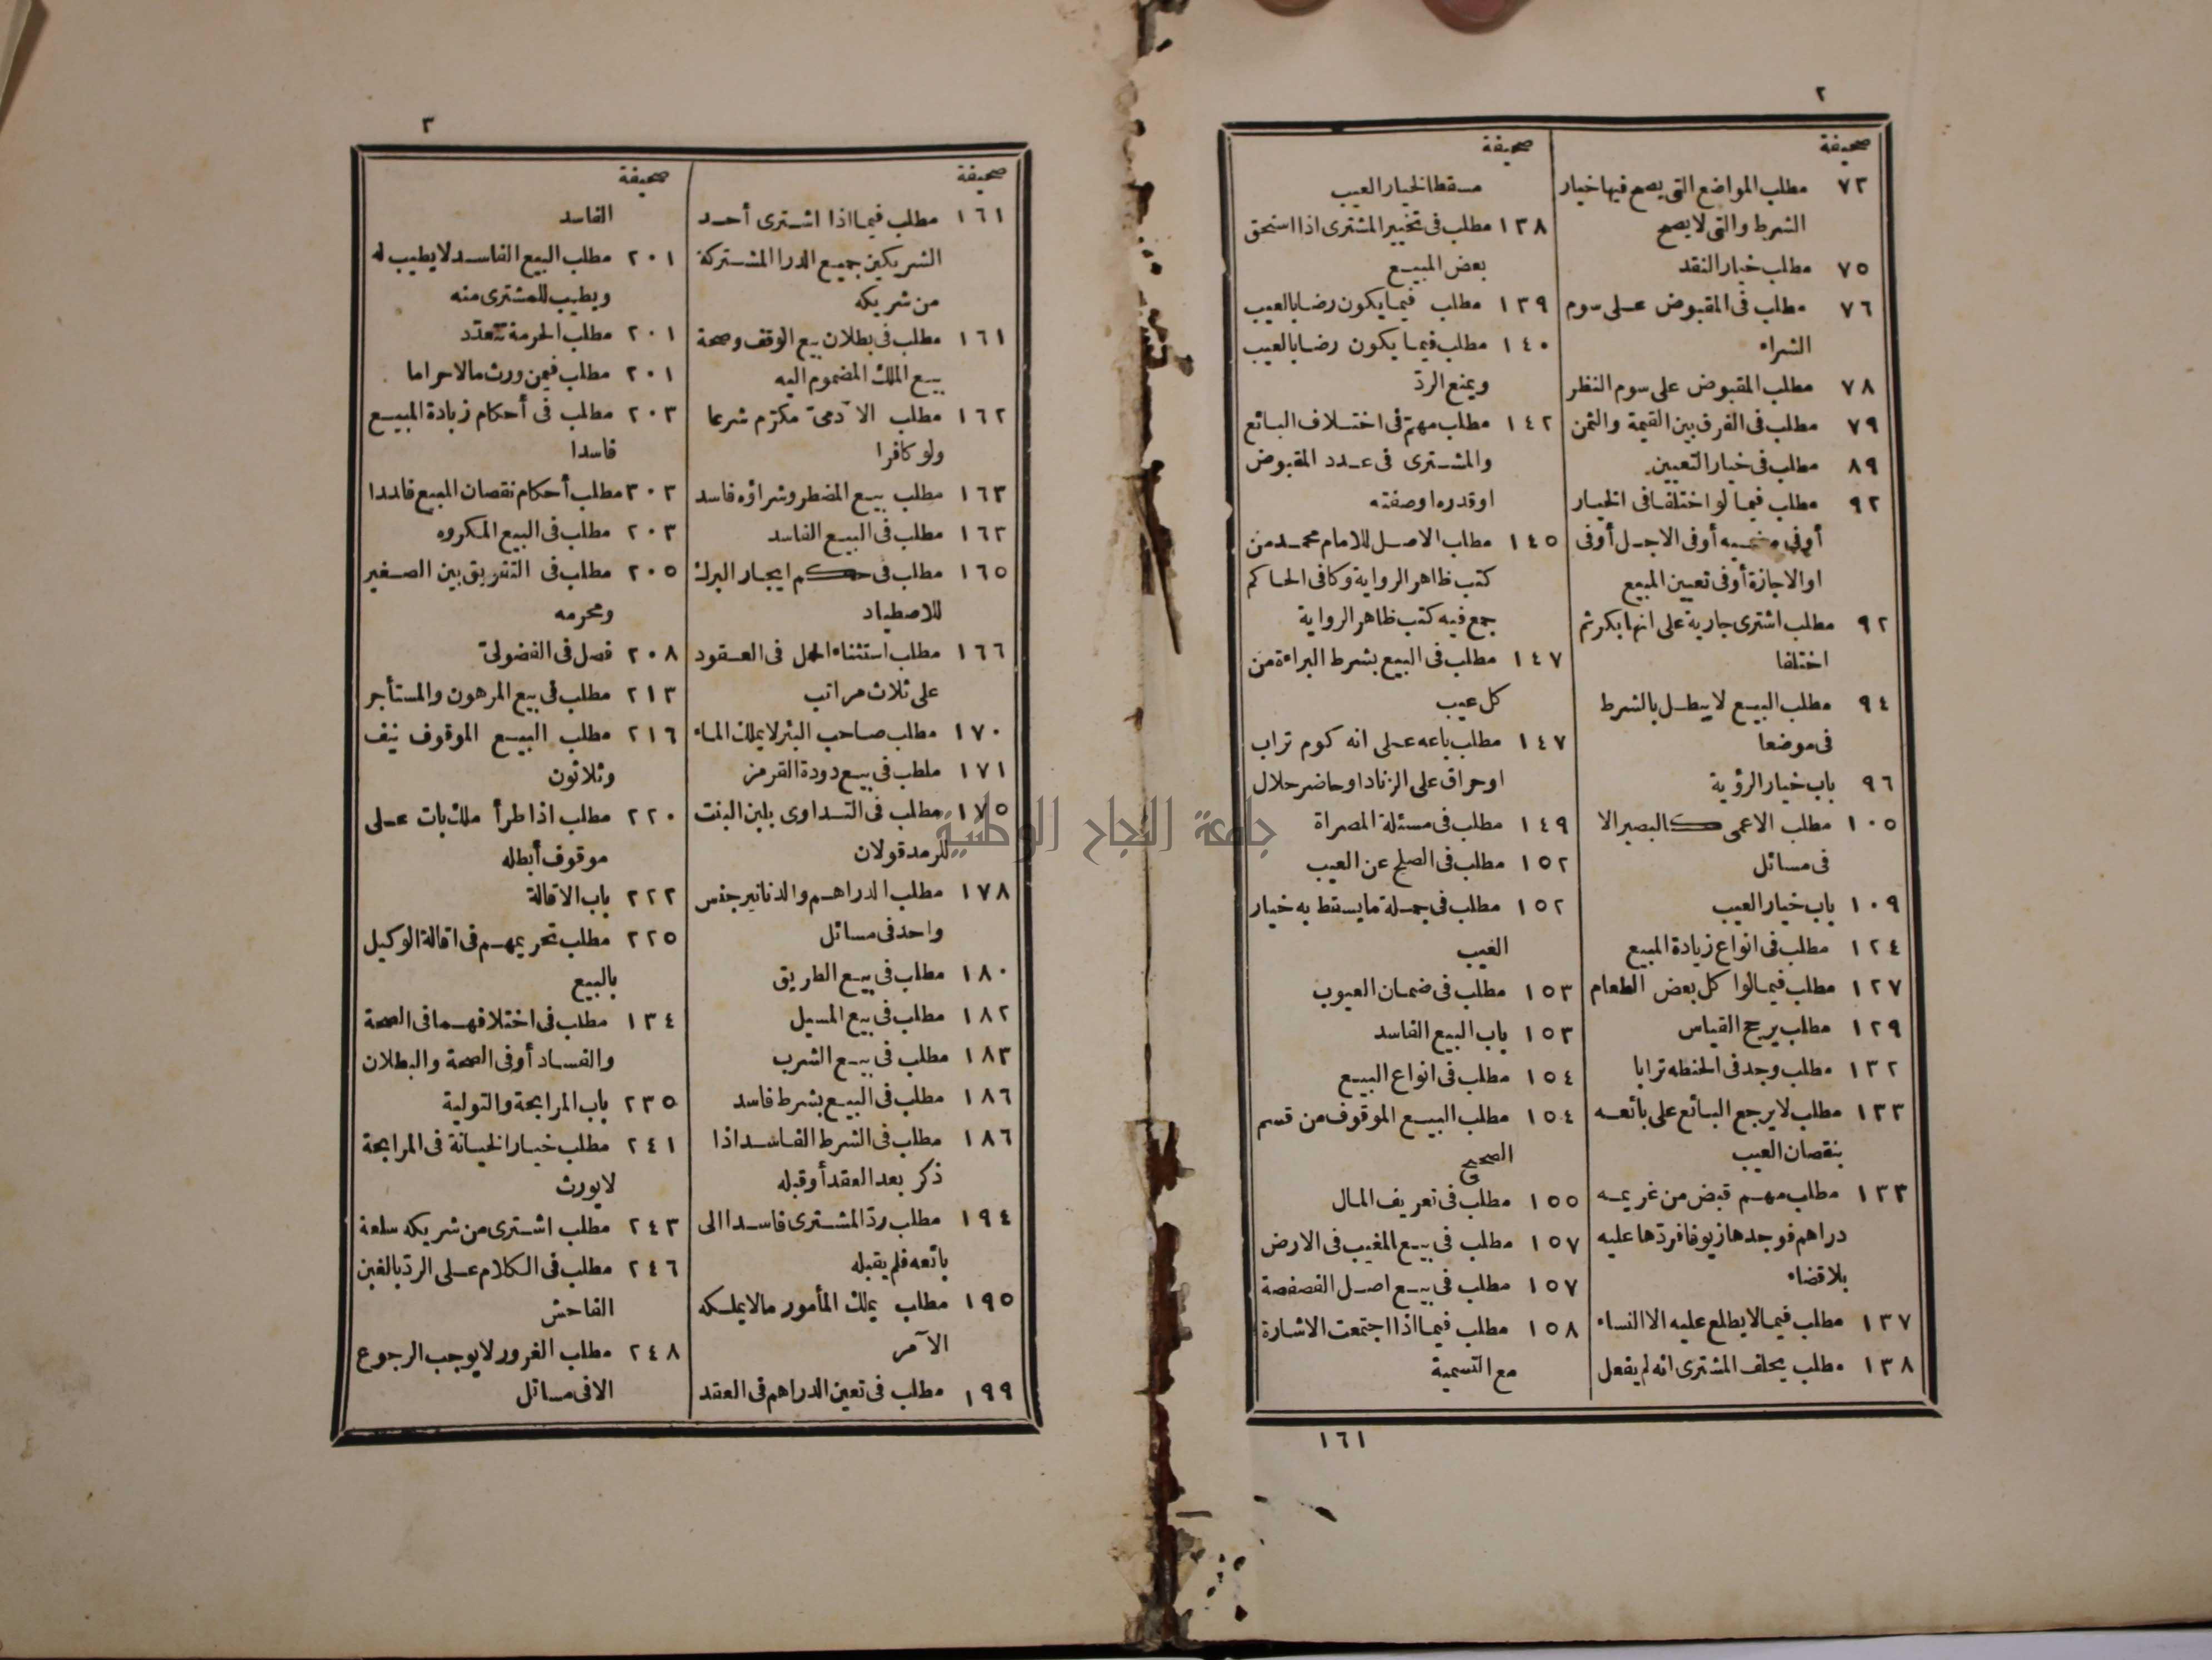 ٢
صحيفة
٧٣ مطلب المواضع التى يصح فيها خيار
الشرط والتى لا يصح
٧٥ مطلب خيار النقد
٧٦ مطلب فى المقبوض على سوم
الشراء
٧٨ مطلب المقبوض على سوم النظر
٧٩ مطلب فى الفرق بين القيمة والثمن
٨٩ مطلب فى خيار التعيين
٩٢ مطلب فيما لو اختلفا فى الخيار
أو فى مضيه أو فى الاجل أو فى
او الاجازة أو فى تعيين المبيع
٩٢ مطلب اشترى جارية على انها بكر ثم
اختلفا
٩٤ مطلب البيع لا يبطل بالشرط
فى موضعا
٩٦ باب خيار الرؤية
١٠٥ مطلب الاعمى كالبصير الا
فى مسائل
١٠٩ باب خيار العيب
١٢٤ مطلب فى انواع زيادة المبيع
١٢٧ مطلب فيما لو اكل بعض الطعام
١٢٩ مطلب يرجح القياس
١٣٢ مطلب وجد فى الحنطه ترابا
١٣٣ مطلب لا يرجع البائع على بائعه
بنقصان العيب
١٣٣ مطلب مهم قبض من غريمه
دراهم فوجدها زيوفا فردّها عليه
بلا قضاء
١٣٧ مطلب فيما لا يطلع عليه الا النساء
١٣٨ مطلب يحلف المشترى انه لم يفعل
صحيفة
مسقطا لخيار العيب
١٣٨ مطلب فى تخيير المشترى اذا استحق
بعض المبيع
١٣٩ مطلب فيما يكون رضا بالعيب
١٤٠ مطلب فيما يكون رضا بالعيب
ويمنع الردّ
١٤٢ مطلب مهمّ فى اختلاف البائع
والمشترى فى عدد المقبوض
او قدره او صفته
١٤٥ مطلب الاصل للامام محمد من
كتب ظاهر الرواية وكافى الحاكم
جمع فيه كتب ظاهر الرواية
١٤٧ مطلب فى البيع بشرط البراءة من
كل عيب
١٤٧ مطلب باعه على انه كوم تراب
او حراق على الزناد او حاضر حلال
١٤٩ مطلب فى مسئلة المصراة
١٥٢ مطلب فى الصلح عن العيب
١٥٢ مطلب فى جملة ما يسقط به خيار
العيب
١٥٣ مطلب فى ضمان العيوب
١٥٣ باب البيع الفاسد
١٥٤ مطلب فى انواع البيع
١٥٤ مطلب البيع الموقوف من قسم
الصحيح
١٥٥ مطلب فى تعريف المال
١٥٧ مطلب فى بيع المغيب فى الارض
١٥٧ مطلب فى بيع اصل الفصفصة
١٥٨ مطلب فيما اذا اجتمعت الاشارة
مع التسمية
١٦١
٣
صحيفة
١٦١ مطلب فيما اذا اشترى أحد
الشريكين جميع الدرا المشتركة
من شريكه
١٦١ مطلب فى بطلان بيع الوقف وصحة
بيع الملك المضموم اليه
١٦٢ مطلب الآدمىّ مكرّم شرعا
ولو كافرا
١٦٣ مطلب بيع المضطر وشراؤه فاسد
١٦٣ مطلب فى البيع الفاسد
١٦٥ مطلب فى حكم ايجار البرك
للاصطياد
١٦٦ مطلب استثناء الحمل فى العقود
على ثلاث مراتب
١٧٠ مطلب صاحب البئر لا يملك الماء
١٧١ ملطب فى بيع دودة القرمز
١٧٥ مطلب فى التداوى بلبن البنت
للرمد قولان
١٧٨ مطلب الدراهم والدنانير جنس
واحد فى مسائل
١٨٠ مطلب فى بيع الطريق
١٨٢ مطلب فى بيع المسيل
١٨٣ مطلب فى بيع الشرب
١٨٦ مطلب فى البيع بشرط فاسد
١٨٦ مطلب فى الشرط الفاسد اذا
ذكر بعد العقد أو قبله
١٩٤ مطلب ردّ المشترى فاسدا الى
بائعه فلم يقبله
١٩٥ مطلب يملك المأمور ما لا يملكه
الآمر
١٩٩ مطلب فى تعين الدراهم فى العقد
صحيفة
الفاسد
٢٠١ مطلب البيع الفاسد لا يطيب له
ويطيب للمشترى منه
٢٠١ مطلب الحرمة تتعدّد
٢٠١ مطلب فيمن ورث مالا حراما
٢٠٣ مطلب فى أحكام زيادة المبيع
فاسدا
٣٠٣ مطلب أحكام نقصان المبيع فاسدا
٢٠٣ مطلب فى البيع المكروه
٢٠٥ مطلب فى التفريق بين الصغير
ومحرمه
٢٠٨ فصل فى الفضولىّ
٢١٣ مطلب فى بيع المرهون والمستأجر
٢١٦ مطلب البيع الموقوف نيف
وثلاثون
٢٢٠ مطلب اذا طرأ ملك بات على
موقوف أبطله
٢٢٢ باب الاقالة
٢٢٥ مطلب تحرير مهم فى اقالة الوكيل
بالبيع
١٣٤ مطلب فى اختلافهما فى الصحة
والفساد أو فى الصحة والبطلان
٢٣٥ باب المرابحة والتولية
٢٤١ مطلب خيار الخيانة فى المرابحة
لا يورث
٢٤٣ مطلب اشترى من شريكه سلعة
٢٤٦ مطلب فى الكلام على الردّ بالغبن
الفاحش
٢٤٨ مطلب الغرور لا يوجب الرجوع
الا فى مسائل
جامعة النجاح الوطنية